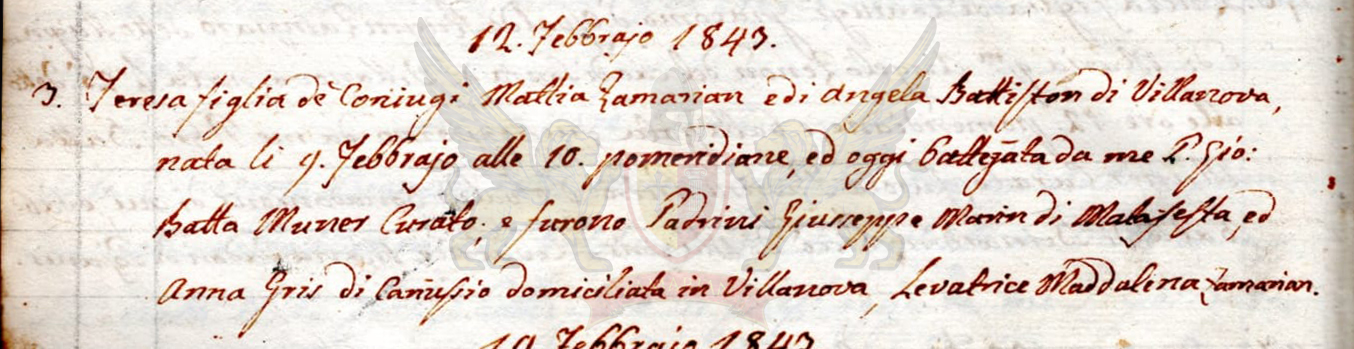 12. Febbrajo 1843.
3. Teresa figlia dè Coniugi Mattia Zamarian e di Angela Battiston di Villanova,
nata li 9. Febbrajo alle 10. pomeridiane, ed oggi battezzata da me P. Gio:
Batta Muner Curato; e furono Padrini Giuseppe Marin di Malafesta, ed
Anna Gris di Canussio domiciliata in Villanova, Levatrice Maddalena Zamarian.
19 Febbrajo 1843